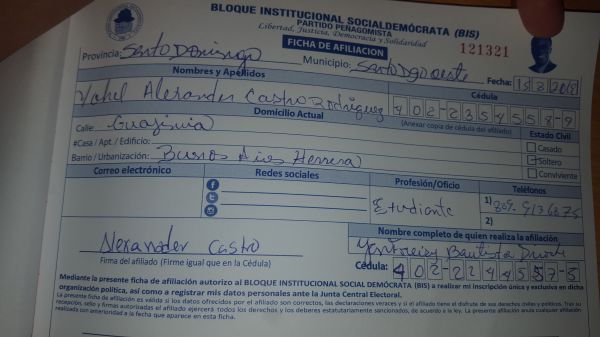 BLOQUE INSTITUCIONAL SOCIALDEMÓCRATA (BIS)
PARTIDO PEÑAGOMISTA
Libertad, Justicia, Democracia y Solidaridad
FICHA DE AFILIACION
121321
Provincia: Santo Domingo Municipio: Santo Dgo oeste Fecha:
Nombres y Apellidos Cédula
Alexander Castro Rodriguez 402-2354558-9
Domicilio Actual (Anexar copia de cédula del afiliado)
Calle: Estado Civil
#Casa / Apt. / Edificio: Casado
Barrio / Urbanización: Buenos Aires Herrera Soltero
Conviviente
Correo electrónico Redes sociales Profesión/Oficio Teléfonos
Estudiante 1) 809-
2)
Nombre completo de quien realiza la afiliación
Alexander Castro Bautista
Firma del afiliado (Firme igual que en la Cédula) Cédula: 402-2244557-5
Mediante la presente ficha de afiliación autorizo al BLOQUE INSTITUCIONAL SOCIAL DEMÓCRATA (BIS) a realizar mi inscripción única y exclusiva en dicha
organización política, así como a registrar mis datos personales ante la Junta Central Electoral.
La presente ficha de afiliación es válida si los datos ofrecidos por el afiliado son correctos, las declaraciones veraces y si el afiliado tiene el disfrute de sus derechos civiles y políticos. Tras su
recepción, sello y firmas autorizadas el afiliado ejercerá todos los derechos y los deberes estatutariamente sancionados, de acuerdo a la ley. La presente afiliación anula cualquier afiliación
realizada con anterioridad a la fecha que aparece en esta ficha.